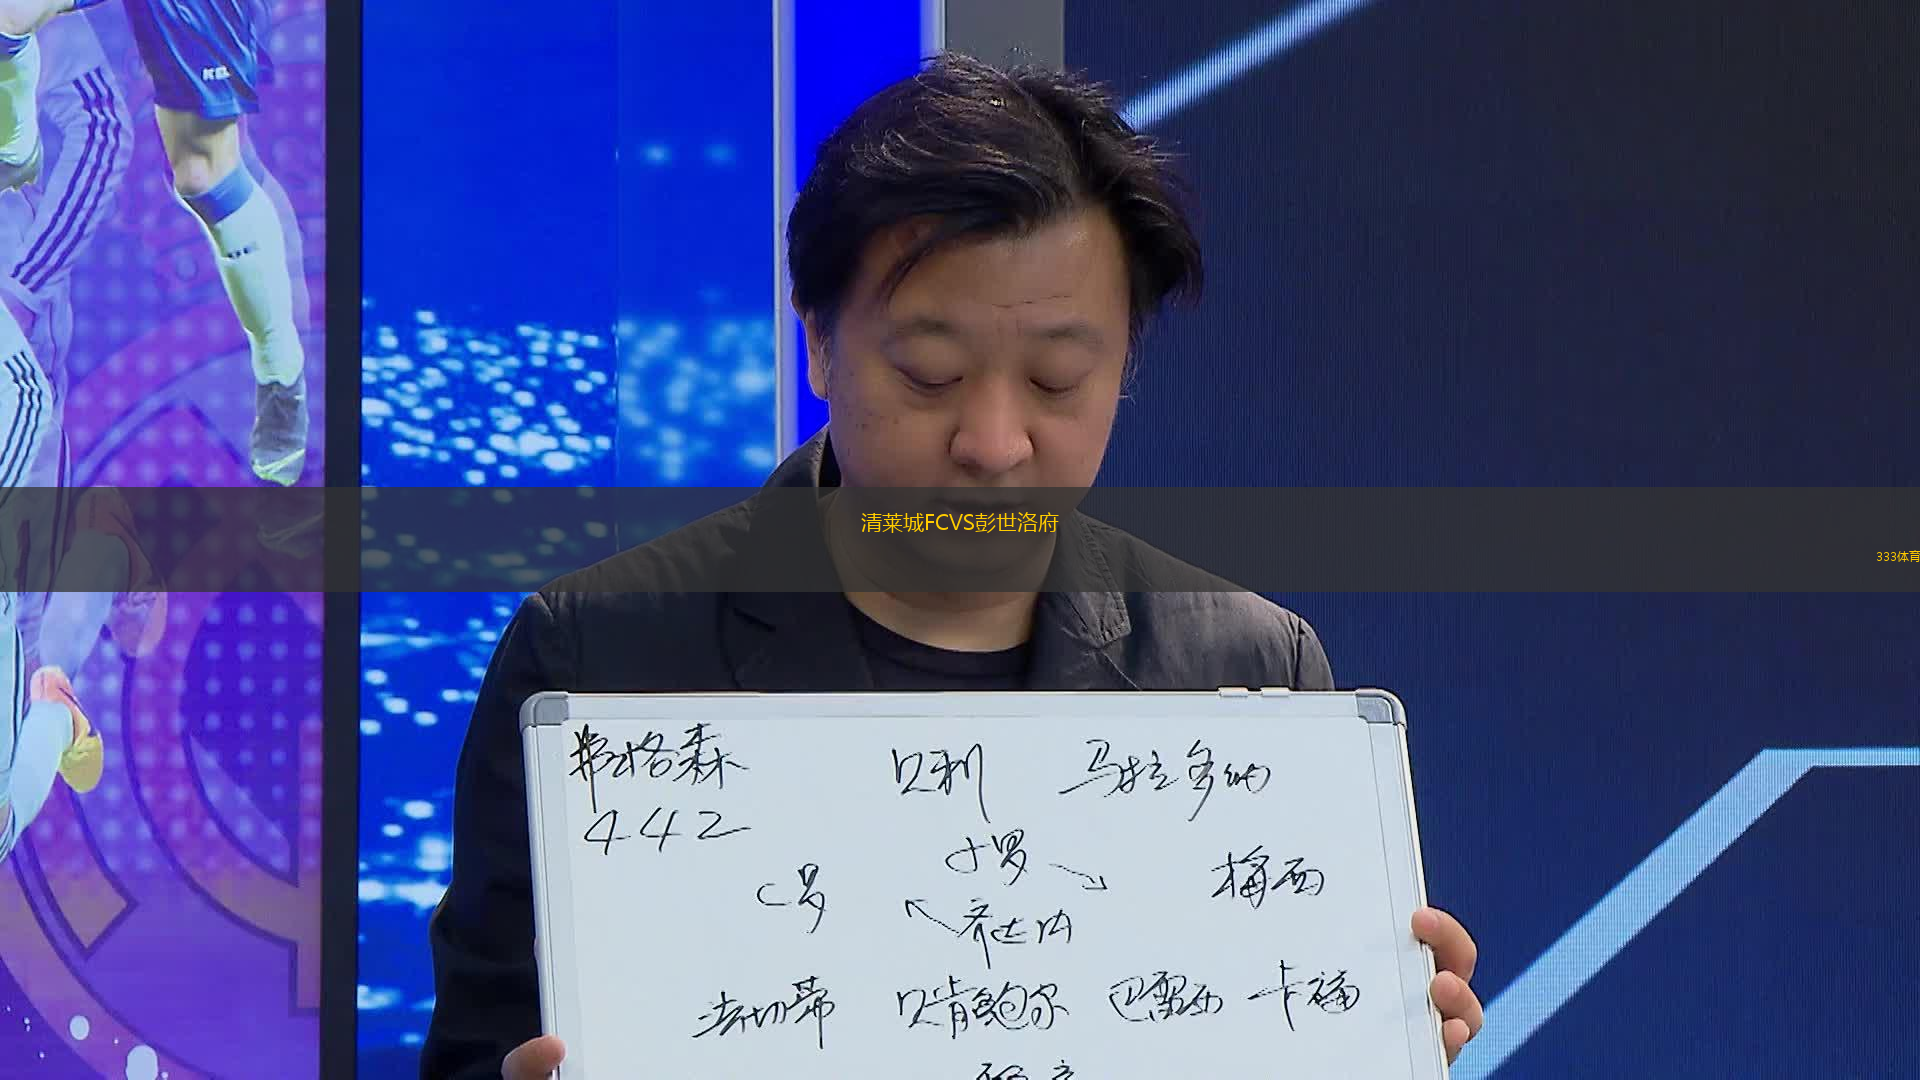 清莱城FCVS彭世洛府
333体育
弗格森 贝利 马拉多纳
442
小罗
C罗 梅西
齐达内
法切蒂 贝肯鲍尔 巴雷西 卡福